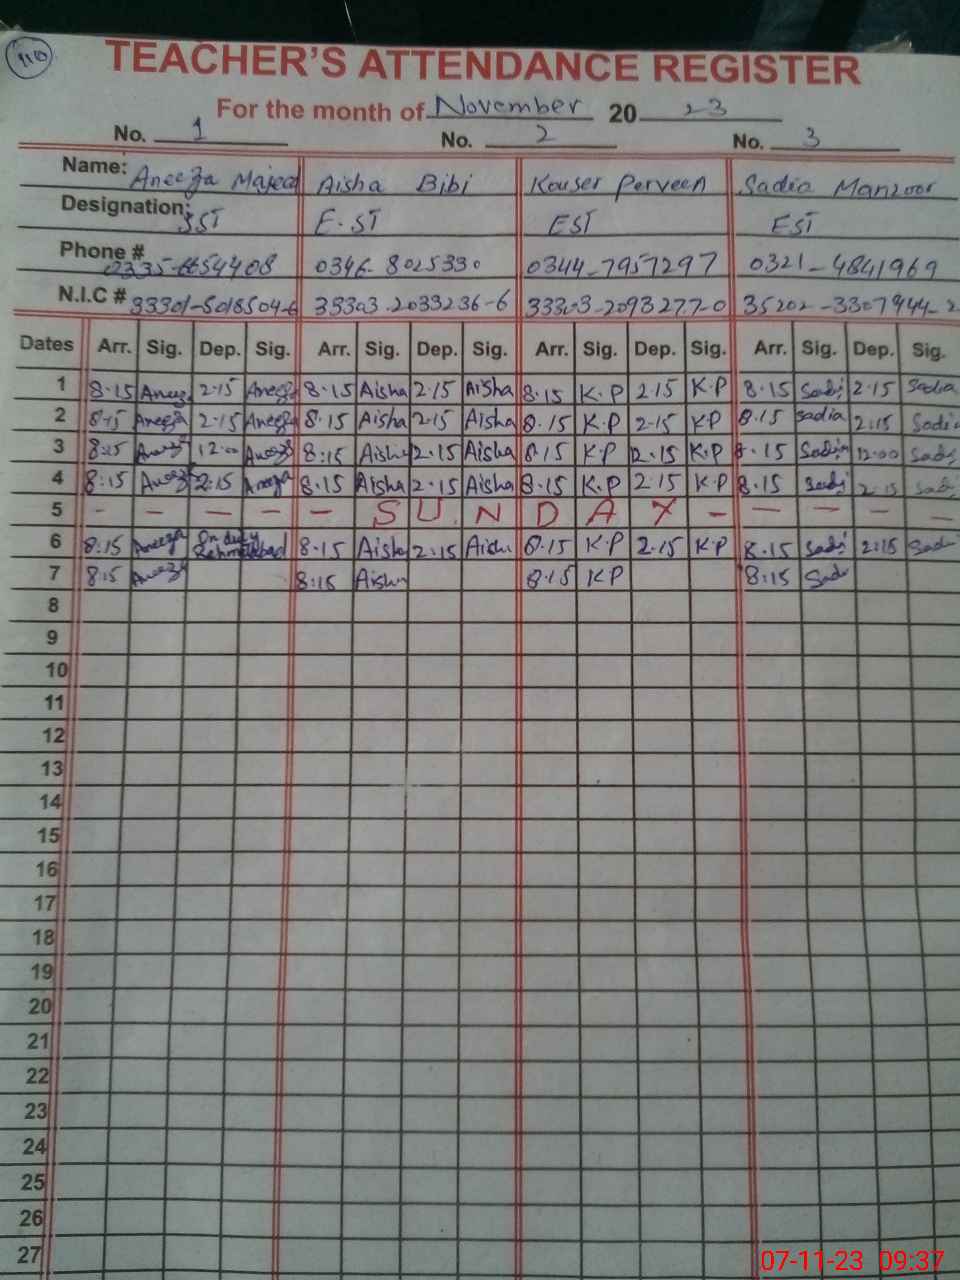 TEACHER'S ATTENDANCE REGISTER
For the month of November 20 23
No. 1 No. 2 No. 3
Name: Aneeza Majeed Aisha Bibi Kouser Perveen Sadia Manzoor
Designation: SST E.ST EST EST
Phone # 0346-8025330 0344-7957297 0321-4841969
N.I.C # 33301-5018504-6 33303-2033236-6 33303-2093277-0 35202-3307944-2
Dates Arr. Sig. Dep. Sig. Arr. Sig. Dep. Sig. Arr. Sig. Dep. Sig. Arr. Sig. Dep. Sig.
1 8.15 Aneeza 2.15 Aneeza 8.15 Aisha 2.15 Aisha 8.15 K.P 2.15 K.P 8.15 Sadia 2.15 Sadia
2 8.15 Aneeza 2.15 Aneeza 8.15 Aisha 2.15 Aisha 8.15 K.P 2.15 KP 8.15 sadia 2:15 Sadia
3 8:15 Aneeza 12.00 Aneeza 8:15 Aisha 2.15 Aisha 8.15 K.P 12.15 K.P 8.15 Sadia 12:00 Sadia
4 8:15 Aneeza 2.15 Aneeza 8.15 Aisha 2.15 Aisha 8.15 K.P 2.15 K.P 8.15 Sadi 2.15 Sadi
5 - - - - - S U N D A Y - - - - -
6 8:15 Aneeza On duty 8.15 Aisha 2:15 Aisha 8.15 K.P 2.15 K.P 8.15 Sadi 2:15 Sadi
7 8:15 Aneeza 8:15 Aisha 8.15 KP 8:15 Sadi
8
9
10
11
12
13
14
15
16
17
18
19
20
21
22
23
24
25
26
27
07-11-23 09:37